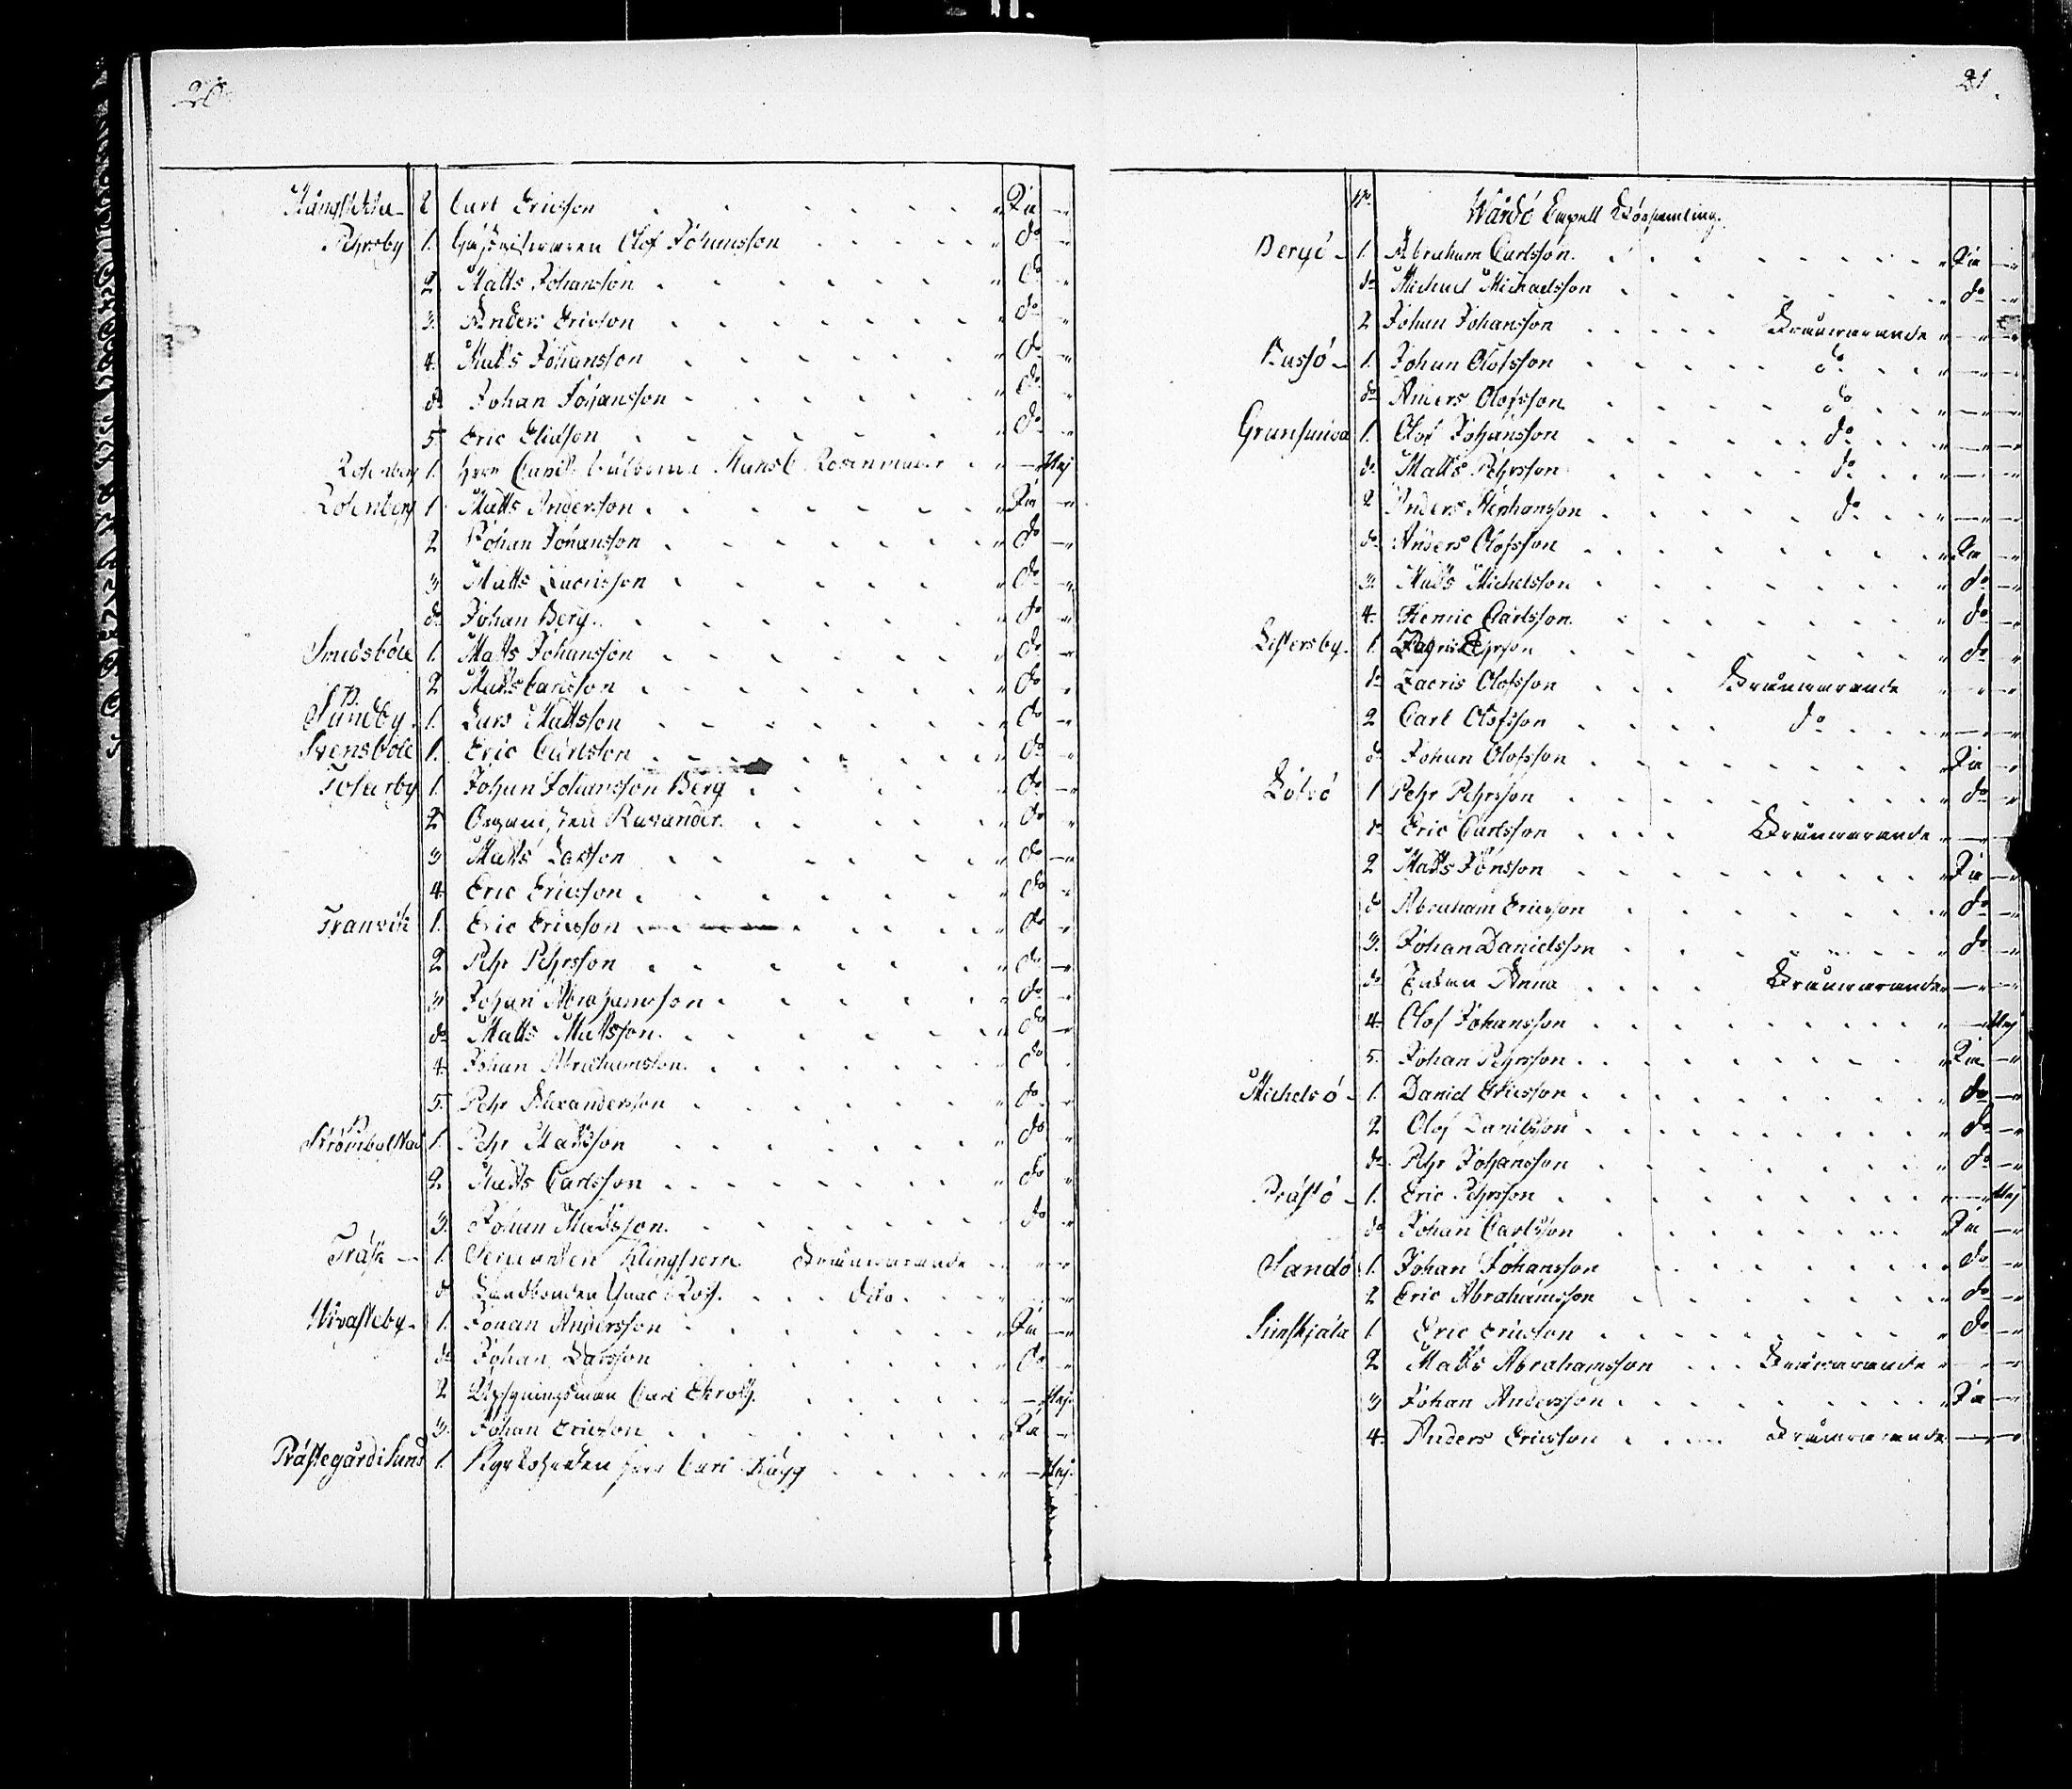 20
Kångsläktia 2 Carl Ericsson Ja
Pehrsby 1. Gästgifwaren Olof Johansson do
2 Matts Johansson do
3. Anders Ericsson do
4. Matts Johansson do
do Johan Johansson do
5 Eric Eliasson do
Rosenberg 1. Herr Nej
Rosenberg 1 Matts Andersson Ja
2 Johan Johansson do
3 Matts Zacrisson do
do Johan Berg do
Smedsböle 1. Matts Johansson do
2 Matts Carlsson do
Sundby 1. Lars Mattsson do
Svensböle 1. Eric Carlsson do
Tosarby 1. Johan Johansson Berg do
2 Organisten Ravander do
3 Matts Larsson do
4 Eric Ericsson do
Tranvik 1. Eric Ericsson do
2 Pehr Pehrsson do
3 Johan Abrahamsson do
do Matts Mattsson do
4. Johan Abrahamsson do
5. Pehr Alexandersson do
Strömbolstad 1. Pehr Mattsson do
2. Matts Carlsson do
3. Johan Mattsson do
Träsk 1. Sergeanten Klingsporn frånwarande
do Landbonden Isaac Ross dito
Wivasteby 1. Johan Andersson Ja
do Johan Larsson do
2 Uppsyningsman Carl Ekroth Nej
3. Johan Ericsson Ja
Prästegård i Sund 1. Kyrkoherden Herr Carl Nej
21.
No Wårdö Capell Församling.
Bergö 1. Abraham Carlsson Ja
do Michael Michaelsson do
2 Johan Johansson Frånwarande
Bussö 1. Johan Olofsson do
do Anders Olofsson do
Grunsunda 1. Olof Johansson do
do Matts Pehrsson do
2 Anders Stephansson do
do Anders Olofsson Ja
3. Matts Michelsson do
4. Henric Carlsson do
Listersby 1. do
do Zacris Olofsson Frånwarande
2 Carl Olofsson do
do Johan Olofsson Ja
Löfsö 1 Pehr Pehrsson do
do Eric Carlsson Frånwarande
2 Matts Jönsson Ja
do Abraham Ericsson do
3. Johan Danielsson do
do Enkan Anna Frånwarande
4. Olof Johansson Nej
5. Johan Pehrsson Ja
Michelsö 1. Daniel Ericsson do
2 Olof Danielsson do
do Pehr Johansson do
Prästö 1. Eric Pehrsson Nej
do Johan Carlsson Ja
Sandö 1. Johan Johansson do
2 Eric Abrahamsson do
Simskjäla 1. Eric Ericsson do
2 Matts Abrahamsson Frånwarande
3 Johan Andersson Ja
4. Anders Ericsson Frånwarande